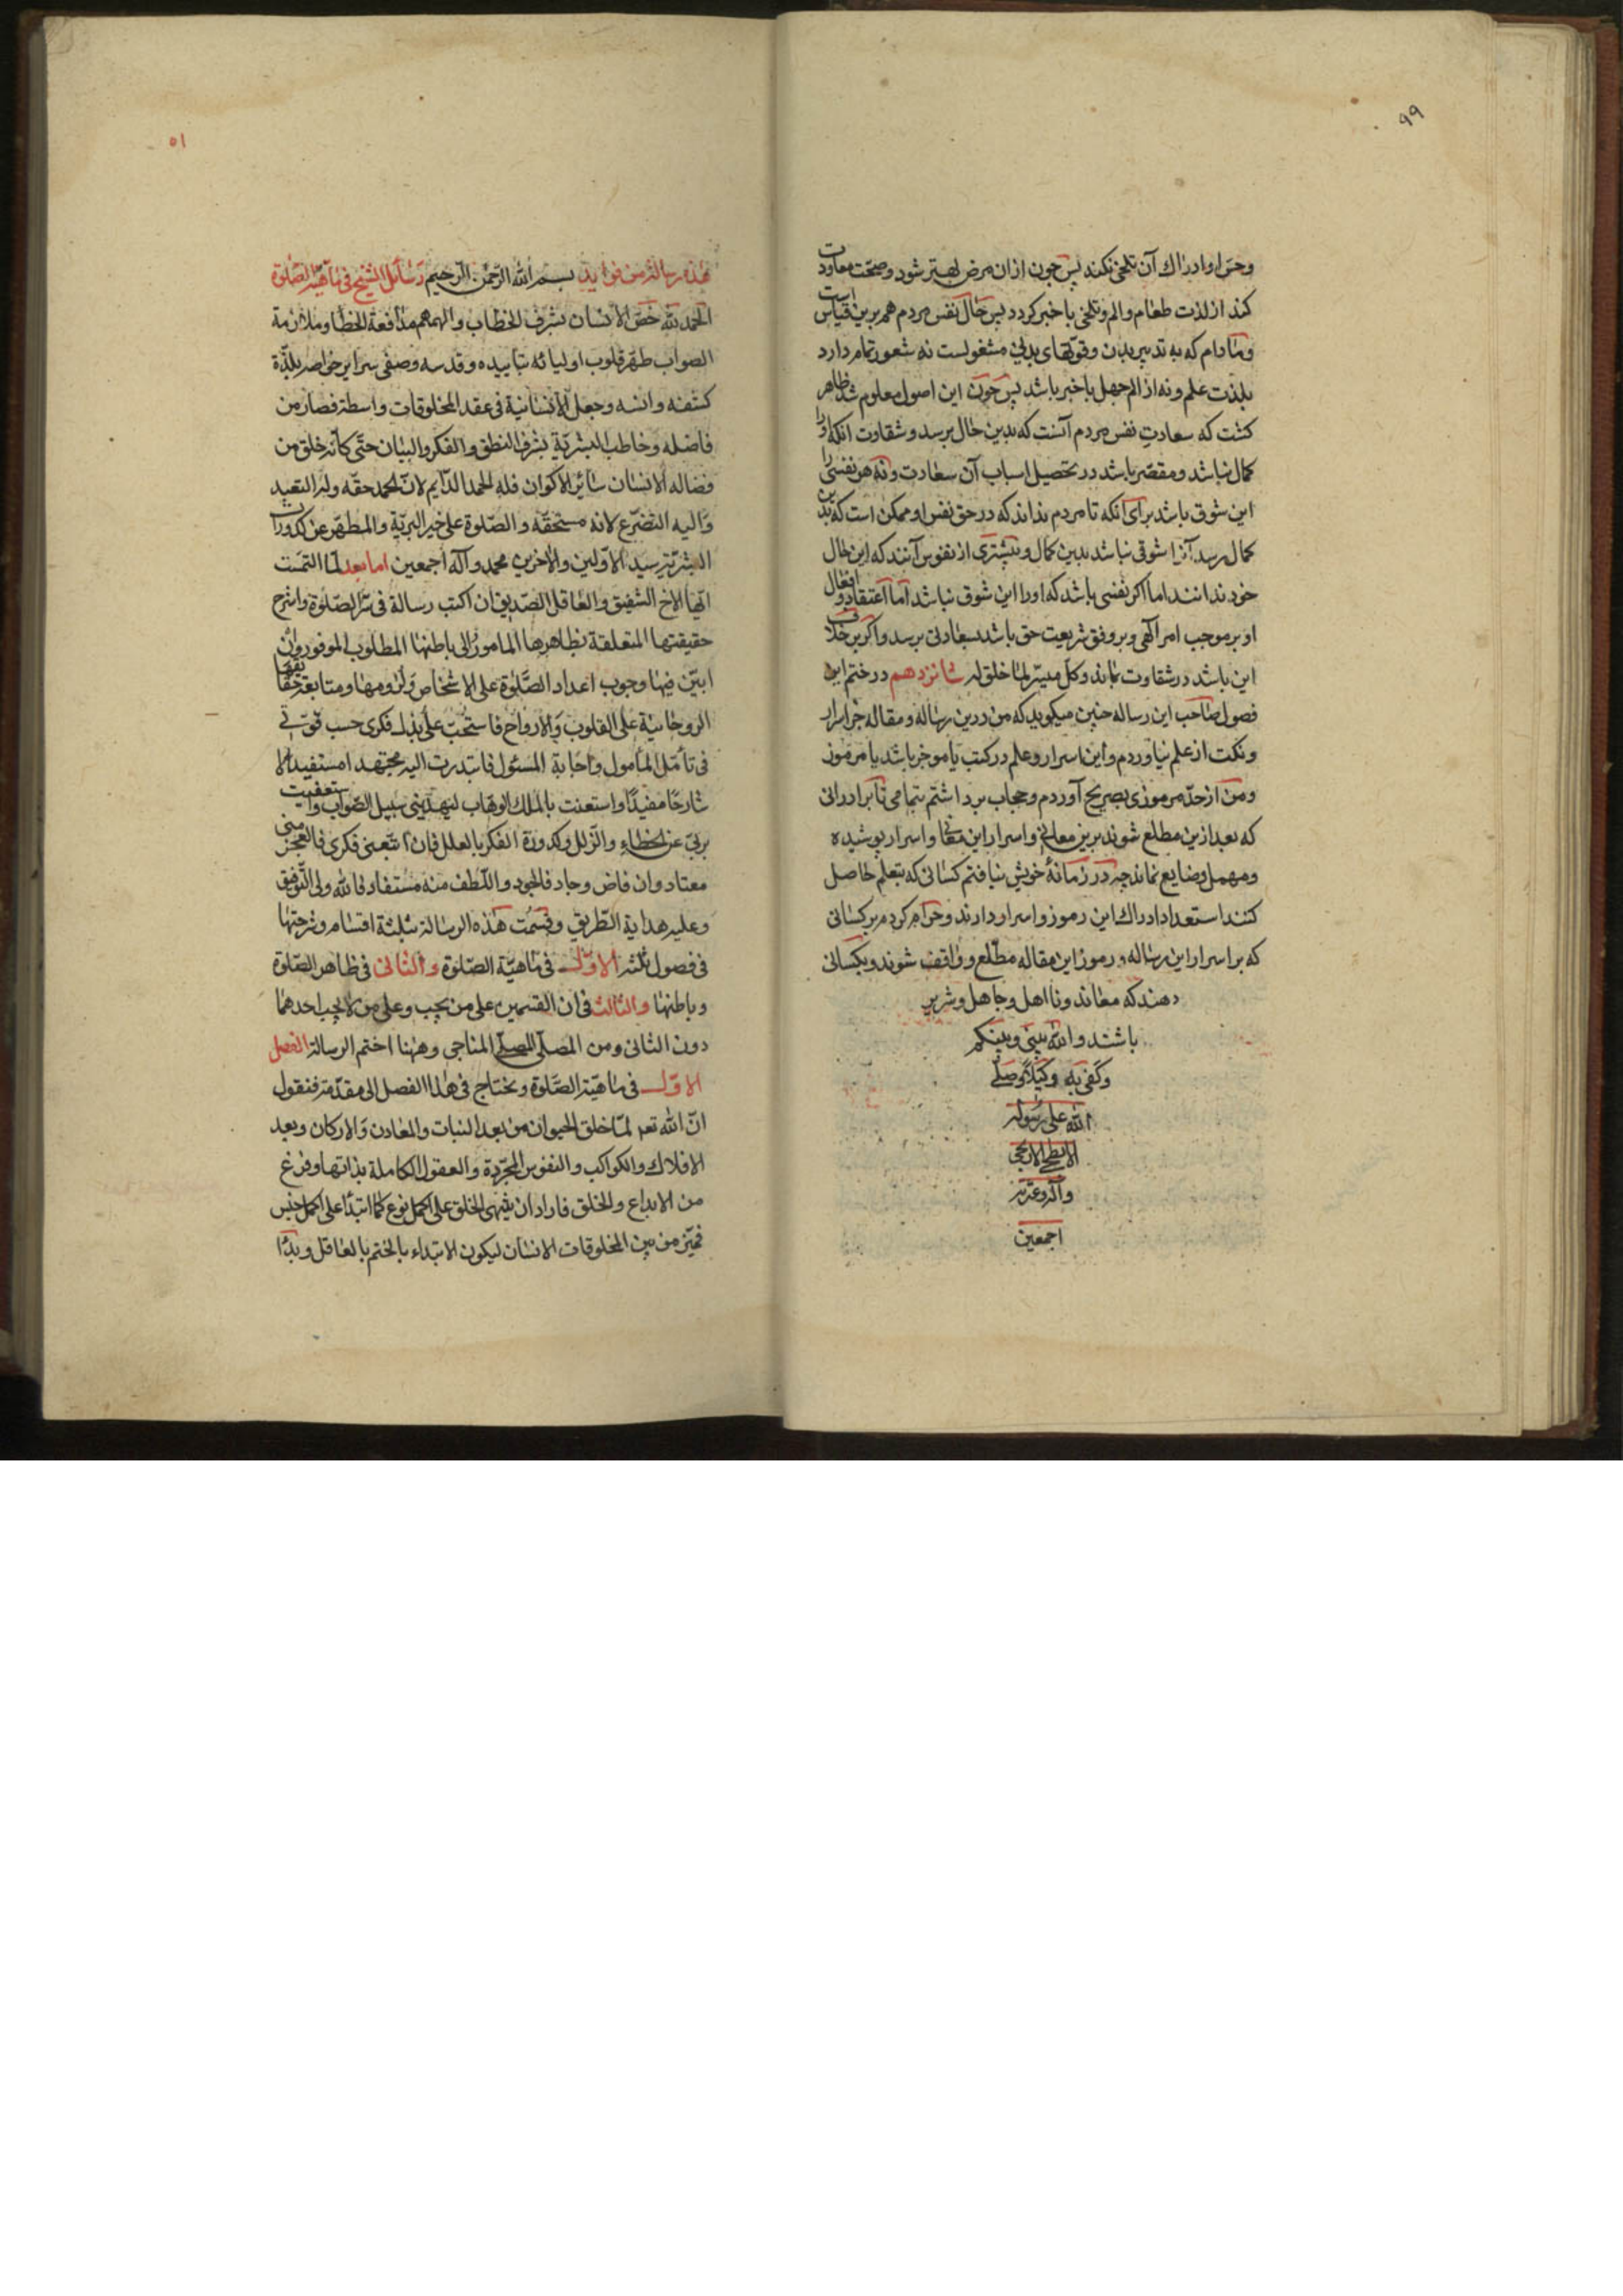 ٩٩
وحس او ادراك آن تلخى نكند پس چون ازان مرض بهتر شود وصحت معاودت
كند از لذت طعام والم وتلخى با خبر كردد پس حال نفس مردم هم برين قياس است
ومادام كه به تدبير بدن وقوتهاى بدنى مشغولست نه شعور تمام دارد
بلذت علم ونه از الم جهل باخبر باشد پس چون اين اصول معلوم شد ظاهر
كشت كه سعادت نفس مردم آنست كه بدين حال برسد وشقاوت انكه اورا
كمال نباشد ومقصر باشد در تحصيل اسباب آن سعادت ونه هر نفسى را
اين شوق باشد براى انكه تا مردم نداند كه در حق نفس او ممكن است كه بدين
كمال رسد آنرا شوقى نباشد بدين كمال وبيشترى از نفوس آنند كه اين حال
خود ندانند اما اكر نفسى باشد كه اورا اين شوق نباشد اما اعتقاد وافعال
او بر موجب امر الهى وبر وفق شريعت حق باشد بسعادتى برسد واكر بر خلاف
اين باشد در شقاوت بماند وكل ميسر لما خلق له شانزدهم در ختم اين
فصول صاحب اين رساله چنين ميكويد كه من درين رساله ومقاله جز اسرار
ونكت از علم نياوردم واين اسرار وعلم در كتب يا موجز باشد يا مرموز
ومن از حد مرموزى بصريح آوردم وحجاب برداشتم بتمامى تا برادرانى
كه بعد ازين مطلع شوند برين معانى واسرار اين معنى واسرار پوشيده
ومهمل وضايع نماند چه در زمانهٔ خويش نيافتم كسانى كه بتعلم حاصل
كنند استعداد ادراك اين رموز واسرار دارند وحرام كردم بر كسانى
كه بر اسرار اين رساله ورموز اين مقاله مطلع وواقف شوند وبكسانى
دهند كه معاند ونااهل وجاهل وشرير
باشند والله بينى وبينكم
وكفى به وكيلا وصلى
الله على رسوله
الابطحى
وآله وعترته
اجمعين
٥١
هذه رسالة من فوايد بسم الله الرحمن الرحيم رسائل الشيخ فى ماهية الصلوة
الحمد لله خص الانسان بشرف الخطاب والهمهم مدافعة الخطا وملازمة
الصواب طهر قلوب اوليائه بتاييده وقدسه وصفى سراير خواصه بلذة
كشفه وانسه وجعل الانسانية فى عقد المخلوقات واسطة فصار من
فاضله وخاطب البشرية بشرف النطق والفكر والبيان حتى كأنه خلق من
فضاله الانسان سائر الاكوان فله الحمد الدايم لان الحمد حقه وله التعبد
واليه التضرع لانه مستحقه والصلوة على خير البرية والمطهر عن كدورات
البشرية سيد الاولين والاخرين محمد وآله اجمعين اما بعد لما التمست
ايها الاخ الشفيق والعاقل الصديق ان اكتب رسالة فى سر الصلوة واشرح
حقيقتها المتعلقة بظاهرها المامور الى باطنها المطلوب الموفور وان
ابين فيها وجوب اعداد الصلوة على الاشخاص ولزومها ومتابعة حقايقها
الروحانية على القلوب والارواح فاستحب على ذلك فكرى حسب قوتى
فى تأمل المأمول واجابة المسئول فابتدرت اليه مجتهدا مستفيدا لا
شارحا مفيدا واستعنت بالملك الوهاب ليهدينى سبيل الصواب واستعفيت
بربى عن الخطاء والزلل وكدورة الفكر بالعلل فان اتعبنى فكرى فالعجز منى
معتاد وان فاض وجاد فالجود واللطف منه مستفاد فالله ولى التوفيق
وعليه هداية الطريق وقسمت هذه الرسالة ثلثة اقسام وشرحتها
فى فصول ثلثة الاول فى ماهية الصلوة والثانى فى ظاهر الصلوة
وباطنها والثالث فى ان القسمين على من يجب وعلى من لا يجب احدهما
دون الثانى ومن المصلى المناجى وههنا اختم الرسالة الفصل
الاول فى ماهية الصلوة ونحتاج فى هذا الفصل الى مقدمة فنقول
ان الله تعـ لما خلق الحيوان من بعد النبات والمعادن والاركان وبعد
الافلاك والكواكب والنفوس المجردة والعقول الكاملة بذاتها وفرغ
من الابداع والخلق فاراد ان ينهى الخلق على اكمل نوع كما ابتدأ على اكمل جنس
فميز من بين المخلوقات الانسان ليكون الابتداء بالختم بالعاقل وبدأ